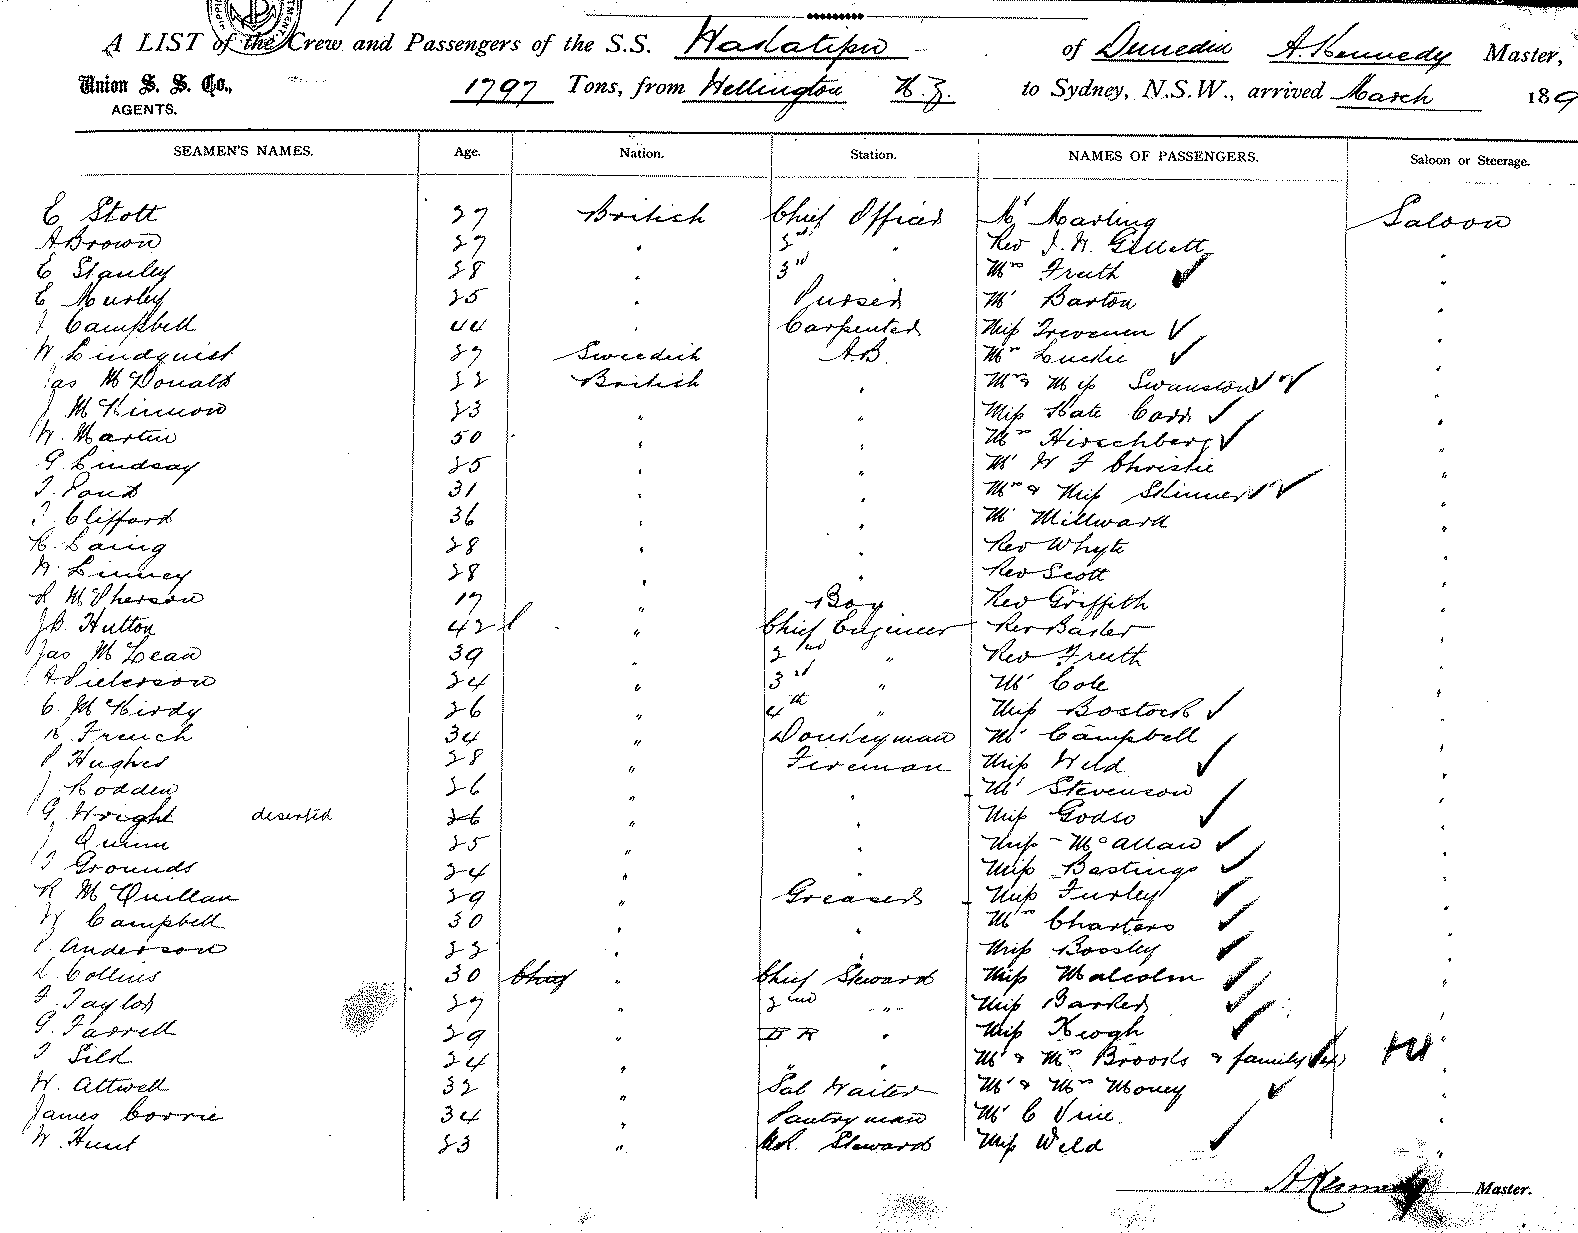 A LIST of the Crew and Passengers of the S.S. Wakatipu of Dunedin A. Kennedy Master,
Union S. S. Co., 1797 Tons, from Wellington N.Z. to Sydney, N.S.W., arrived March 189
AGENTS.
SEAMEN'S NAMES. Age. Nation. Station. NAMES OF PASSENGERS. Saloon or Steerage.
E Stott 27 British Chief Officer Mr Marling Saloon
A Brown 27 " 2nd " Rev J. H. Gillett "
E Stanley 28 " 3rd Mrs Fruth "
E Murley 25 " Purser Mr Barton "
J Campbell 44 " Carpenter Miss Trevenen "
W Lindquist 27 Sweedish A.B. Mrs Luckie "
Jas McDonald 22 British " Mrs & Miss Swanston "
J McKinnon 23 " " Miss Kate Carr "
W. Martin 50 " " Mrs Hirschberg "
G Lindsay 25 " " Mr W F Christie "
J. Pond 31 " " Mrs & Miss Skinner "
J Clifford 36 " " Mr Millward "
R. Laing 28 " " Rev Whyte "
W. Linney 28 " " Rev Scott "
R McPherson 17 " Boy Rev Griffith "
JB. Hutton 42 " Chief Engineer Rev Baster "
Jas McLean 39 " 2nd " Rev Fruth "
A Pickerson 24 " 3rd " Mr Cole "
C. McKirdy 26 " 4th " Miss Bostock "
R French 34 " Donkeyman Mr Campbell "
P Hughes 28 " Fireman Miss Weld "
J Rodden 26 " " Mr Stevenson "
G Wright deserted 26 " " Miss Godso "
J Quinn 25 " " Miss McAllan "
J Grounds 24 " " Miss Bastings "
R McQuillan 29 " Greaser Miss Furley "
W Campbell 30 " " Mrs Charters "
P Anderson 22 " " Miss Bossley "
L Collins 30 Chief " Chief Steward Miss Malcolm "
F Taylor 27 " 2nd " Miss Barker "
G. Farrell 29 " " Miss Keogh "
J Sild 24 " " Mr & Mrs Brooks & family "
W. Attwell 32 " Sal Waiter Mr & Mrs Money "
James Corrie 34 " Pantryman Mr C Vine "
W. Hunt 23 " Steward Miss Weld "
A Kennedy Master.